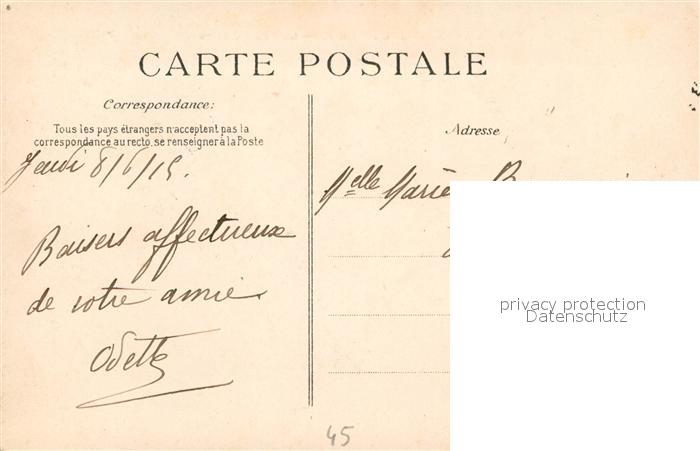 CARTE POSTALE
Correspondance:
Tous les pays étrangers n'acceptent pas la
correspondance au recto, se renseigner à la Poste
Jeudi 8/6/15.
Baisers affectueux
de votre amie
Odette
Adresse
Melle Marie
privacy protection
Datenschutz
45